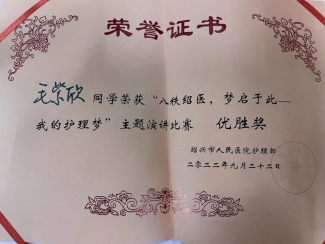 荣誉证书
毛紫欣 同学荣获“八秩绍医，梦启于此——
我的护理梦”主题演讲比赛 优胜奖
绍兴市人民医院护理部
二〇二二年九月二十二日